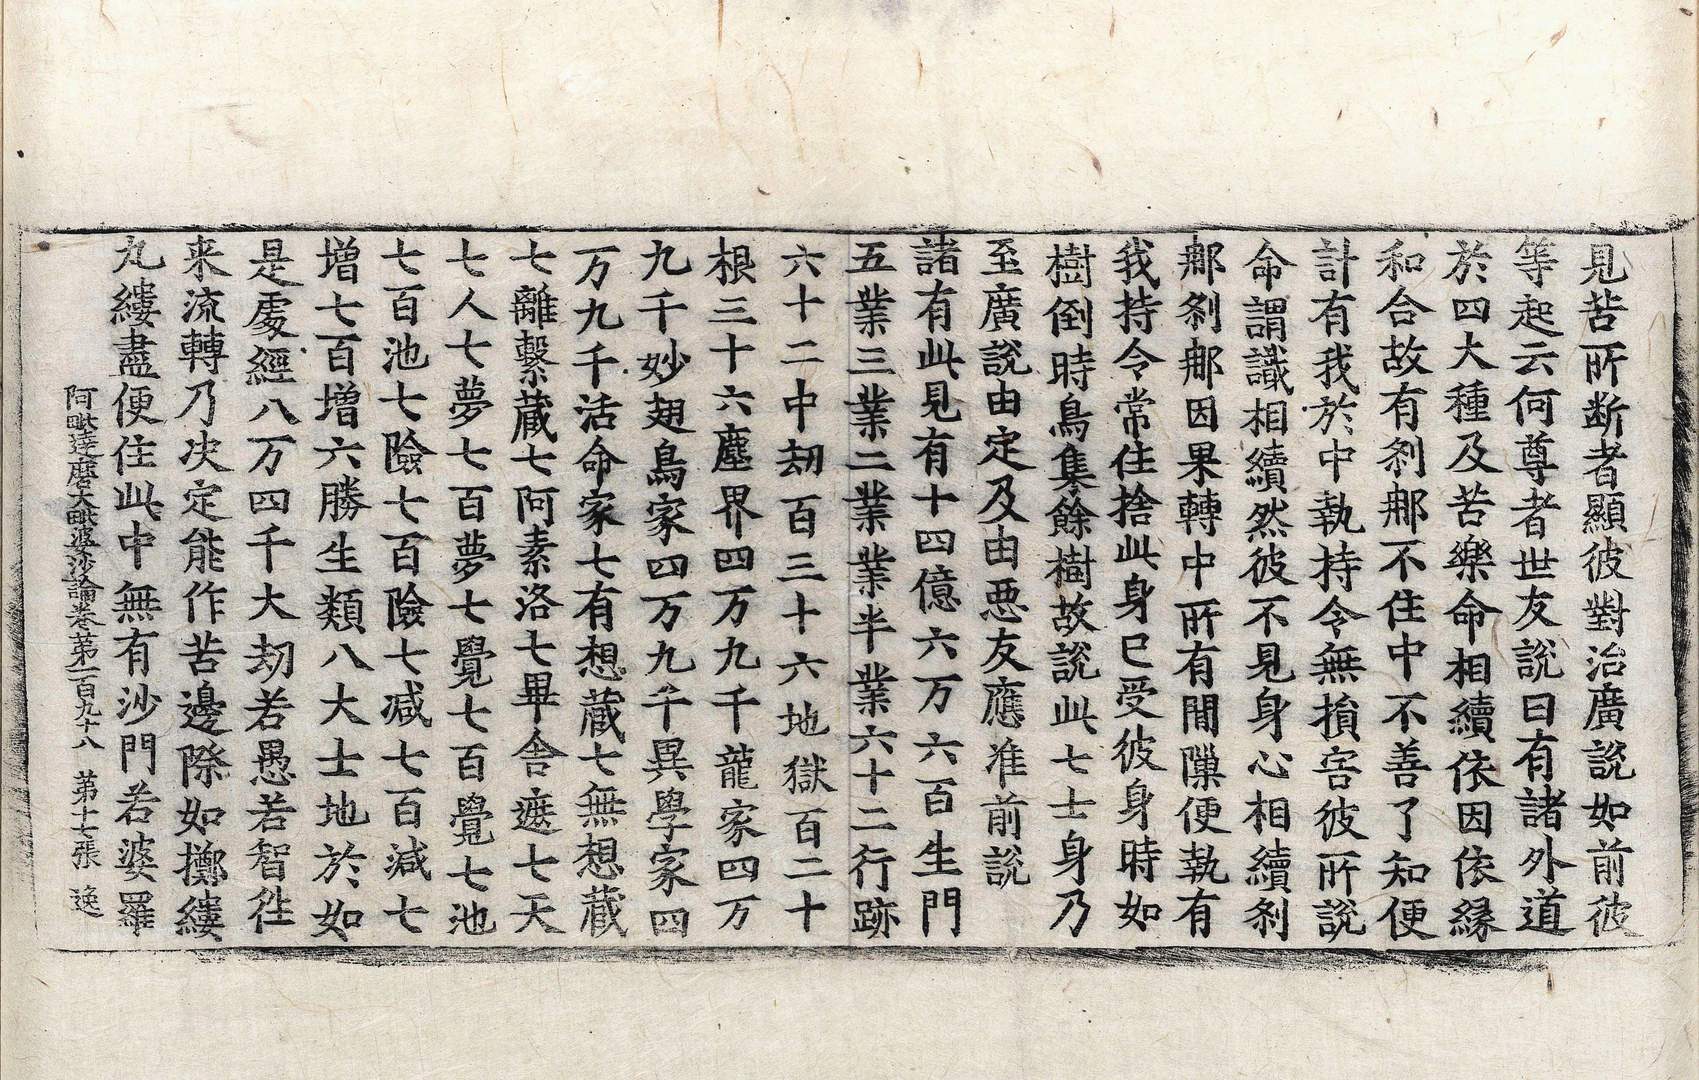 見苦所断者顯彼對治廣說如前彼
等起云何尊者世友說曰有諸外道
於四大種及苦樂命相續依因依縁
和合故有刹那不住中不善了知便
計有我於中執持令無損害彼所說
命謂識相續然彼不見身心相續刹
那刹那因果轉中所有閒隟便執有
我持令常住捨此身已受彼身時如
樹倒時鳥集餘樹故說此七士身乃
至廣說由定及由惡友應准前說
諸有此見有十四億六万六百生門
五業三業二業業半業六十二行跡
六十二中劫百三十六地獄百二十
根三十六塵界四万九千龍家四万
九千妙翅鳥家四万九千異學家四
万九千活命家七有想藏七無想藏
七離繫藏七阿素洛七畢舍遮七天
七人七夢七百夢七覺七百覺七池
七百池七險七百險七减七百減七
增七百增六勝生類八大士地於如
是處經八万四千大劫若愚若智往
来流轉乃决定能作苦邊際如擲縷
丸縷盡便住此中無有沙門若婆羅
阿毗達磨大毗婆沙論卷第一百九十八 第十七張 逸